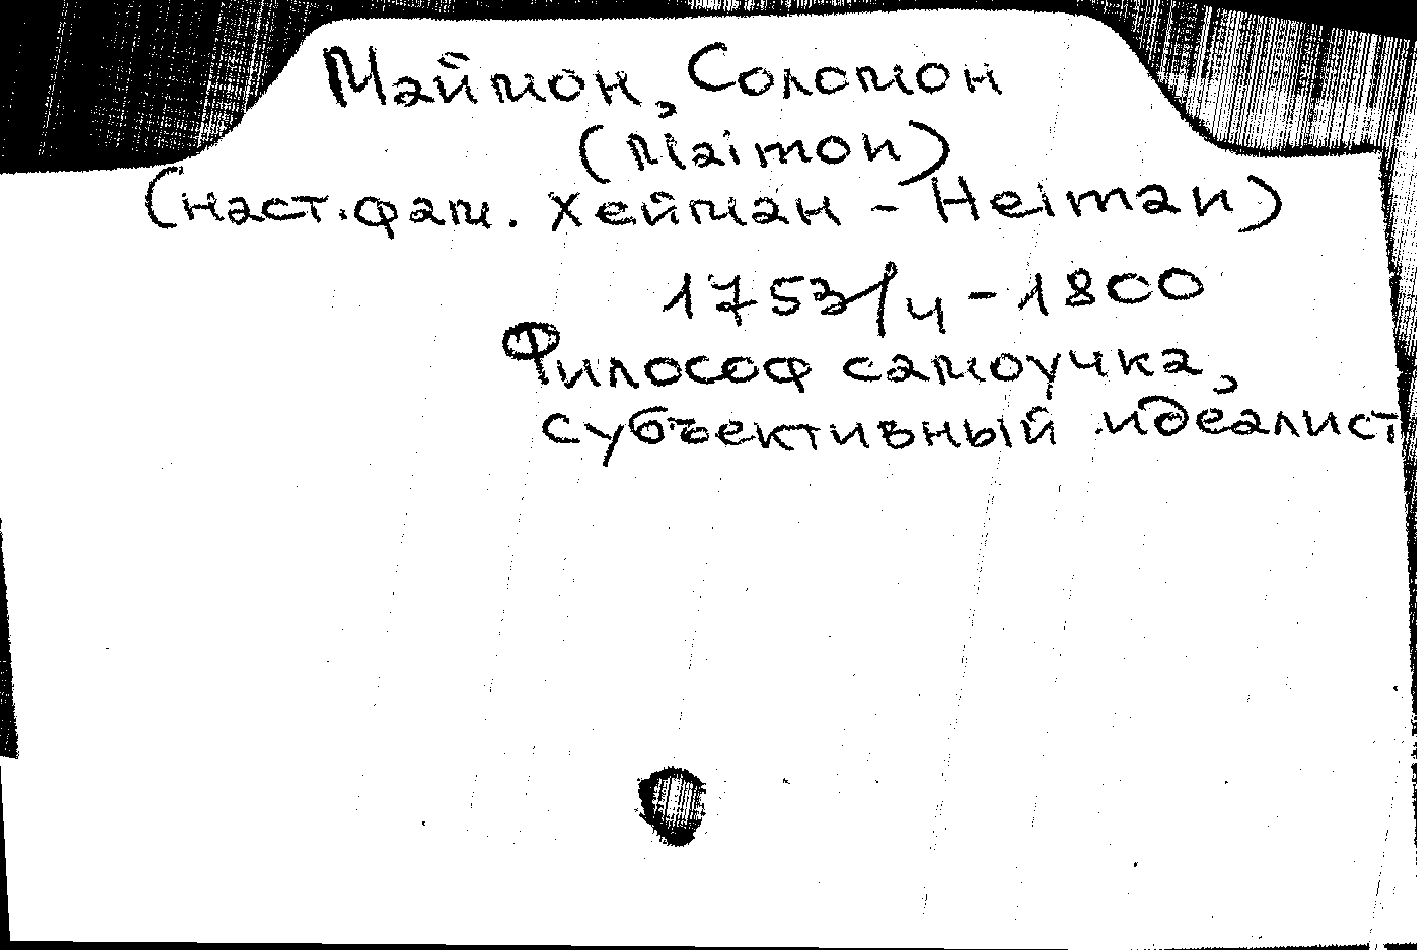 Маймон, Соломон
(Maimon)
(наст.фам. Хейман - Heiman)
1753/4 - 1800
Философ самоучка,
субъективный идеалист